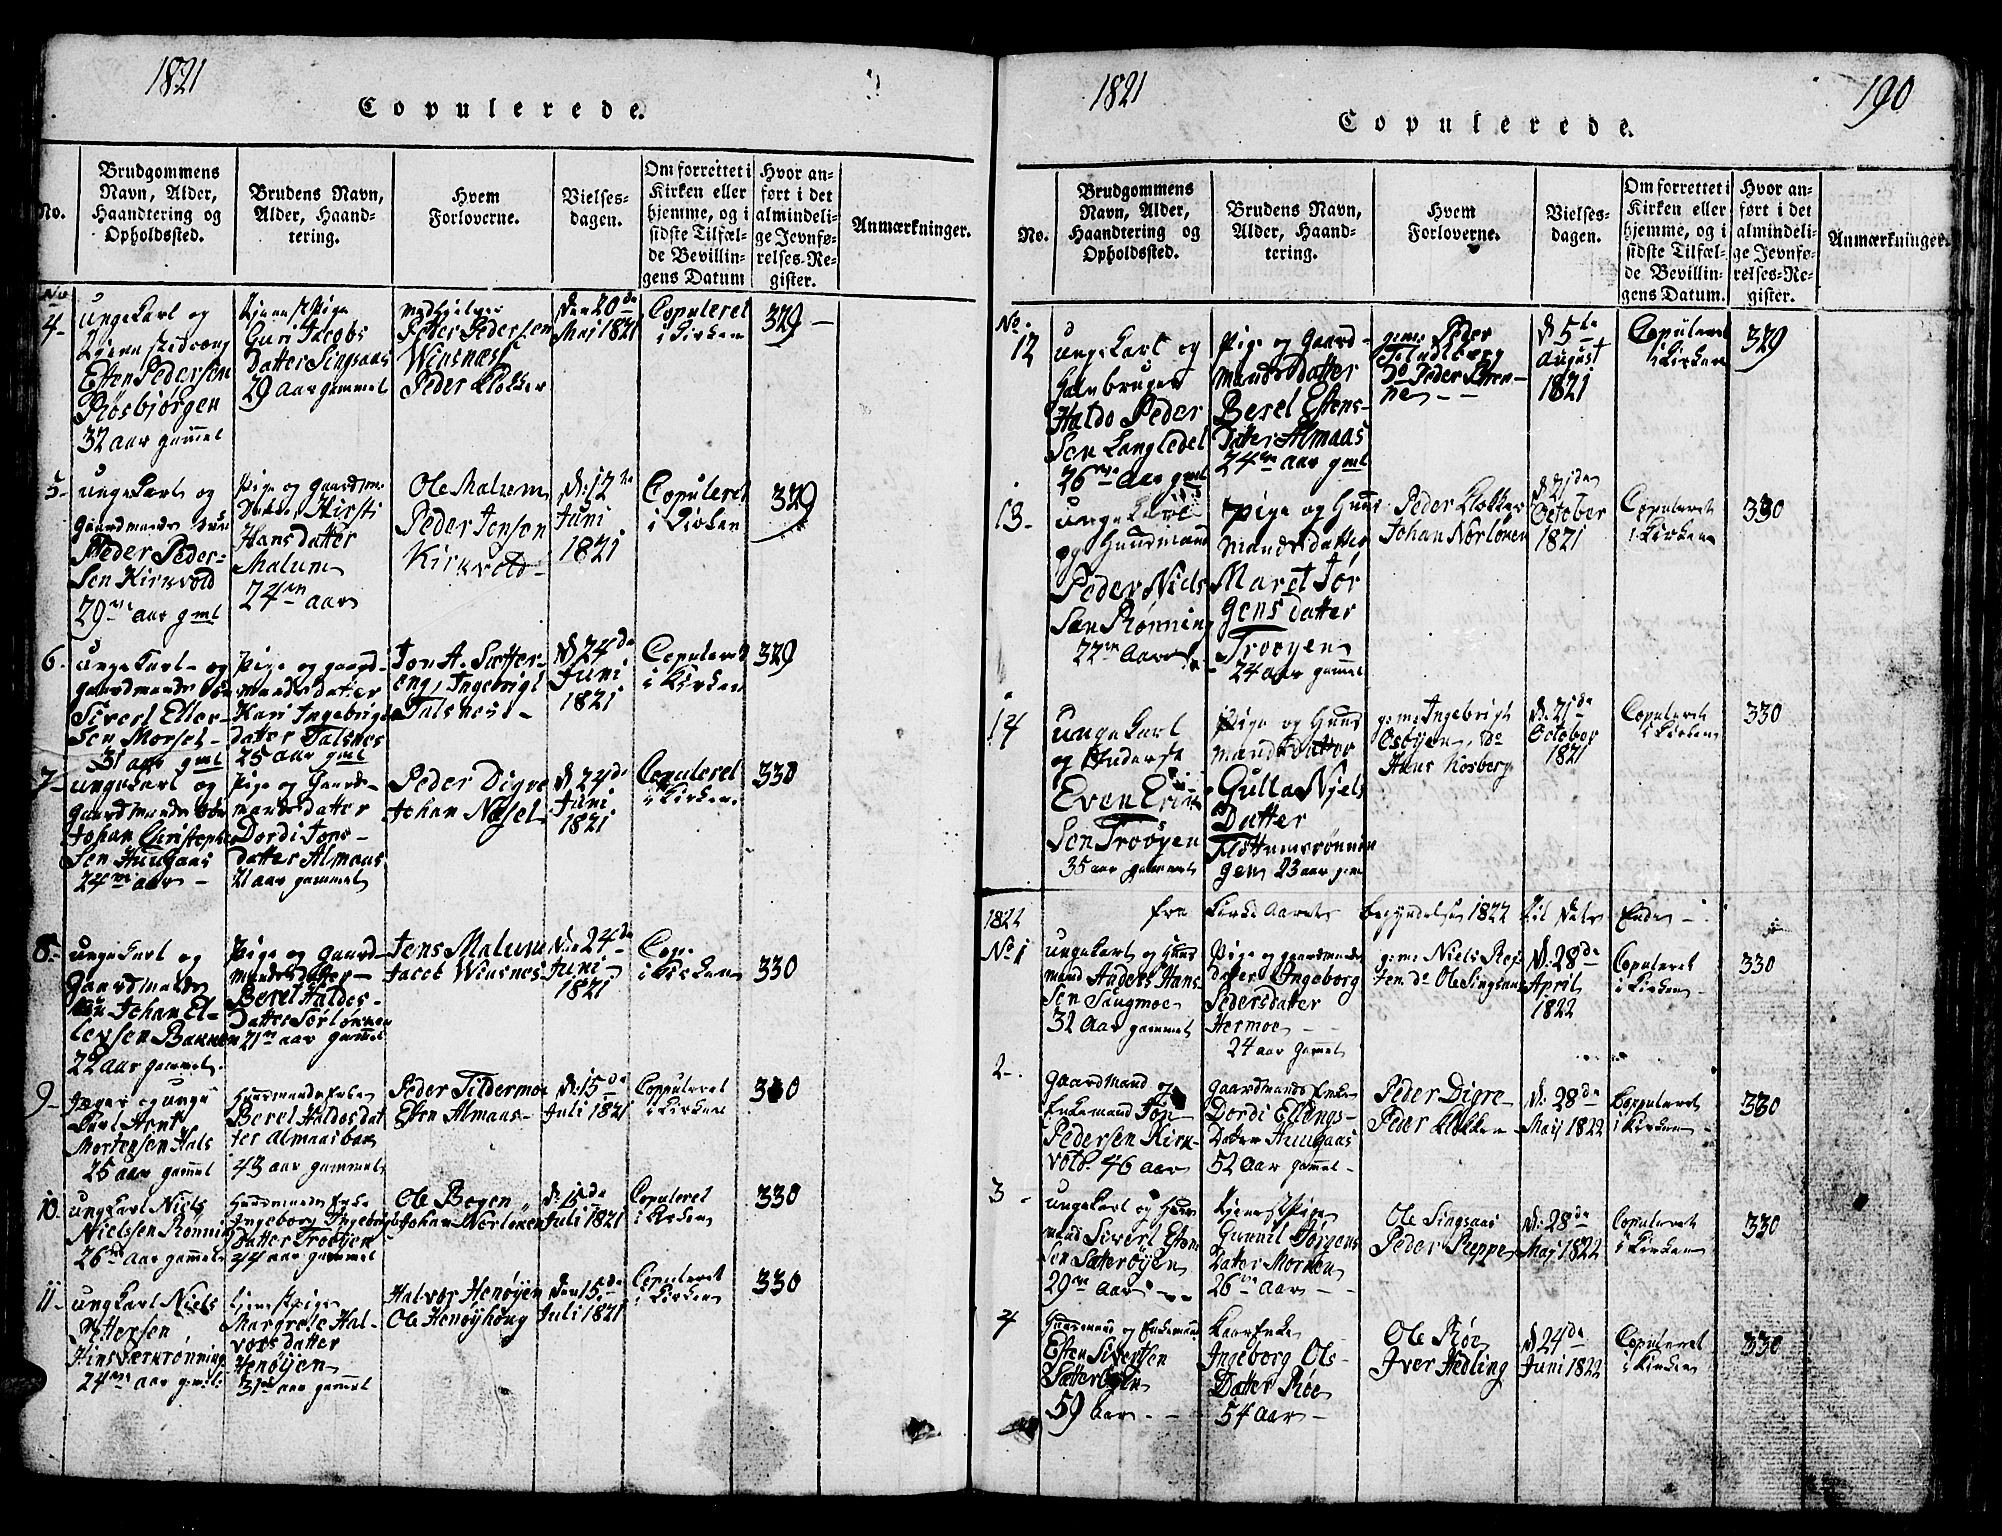 1821
Copulerede.
No.
Brudgommens
Navn, Alder,
Haandtering og
Opholdssted.
Brudens Navn,
Alder, Haand-
tering.
Hvem
Forloverne.
Vielses-
dagen.
Om forrettet i
Kirken eller
hjemme, og i
sidste Tilfæl-
de Bevillin-
gens Datum
Hvor an-
ført i det
almindeli-
ge Jevnfø-
relses-Re-
gister.
Anmærkninger.
No
4-
ungekarl og
Esten Pedersen
Røsbjørgen
32 aar gamel
Tjenestpige
Guri Jacobs
Datter Singsaas
29 aar gammel
Peder Pedersen
Winsnæss
Peder Klokker
Den 20de
Maj 1821
Copuleret
i Kirken
329 -
5-
ungekarl og
gaardmands søn
Peder Peder-
sen Kirkvold
29 aar gml
Pige og gaardm.
Kirsti
Hansdatter
Malum
24 aar
Ole Malum
Peder Jonsen
Kirkvold-
D: 12te
Juni
1821
Copuleret
i Kirken
329
6-
ungekarl og
gaardmands Søn
Sivert Eller-
sen Morset-
31 aar gml
Pige og gaard-
mandsdatter
Kari Ingebrigts
datter Talsnes
25 aar gml
Jon A. Sætter-
eng, Ingebrigt
Talsnes-
D. 24de
Juni
1821
Copuleret
i Kirken
329
7-
ungekarl og
Gaardmands Søn
Johan Christopher
sen Huugaas
24 aar -
Pige og Gaard-
mandsdatter
Dordi Jons-
datter Almaas
21 aar gammel
Peder Digre
Johan Næset-
D. 24de
Juni
1821
Copuleret
i Kirken.
330
8-
ungekarl og
Gaardmands
Søn Johan El-
levsen Bakken
22 aar gammel.
Pige og Gaard-
mandsdatter-
Beret Haldos-
Datter Sørløkken
21 aar gamel
Jens Malum
Jacob Winsnes
Den 24de
Juni
1821
Cop.
i Kirken
330
9-
Jeger og unge
Karl Arnt
Mortensen Hals
25 aar gamel
Huusmands Enke
Beret Haldosdat
ter Almaasbak
43 aar gammel
Peder Tildermoe
Esten Almaas-
D: 15de
Juli 1821
Copuleret
i Kirken
330
10-
ungkarl Niels
Nielsen Rønning
26 aar gammel
Huusmands Enke
Ingeborg Ingebrigts
Datter Troøjen
44 aar gammel
Ole Bogen
Johan Nørløkken
D: 15de
Juli 1821
Copuleret
i Kirken
330
11-
ungkarl Niels
Pettersen
Hinsværkrønning
24 aar gamel
Tjenestpige
Margrete Hal-
vorsdatter
Henøijen
31 aar gammel
Halvor Henøyen
Ole Henøyhoug
Den 15de
Juli 1821
Copuleret
i Kirken
330
1821
190
Copulerede.
No.
Brudgommens
Navn, Alder,
Haandtering og
Opholdssted.
Brudens Navn,
Alder, Haand-
tering.
Hvem
Forloverne.
Vielses-
dagen.
Om forrettet i
Kirken eller
hjemme, og i
sidste Tilfæl-
de Bevillin-
gens Datum.
Hvor an-
ført i det
almindeli-
ge Jevnfø-
relses-Re-
gister.
Anmærkninger.
No.
12
ungekarl og
Haldo Peder
Sen Langledet
26 aar gml
Pige og Gaard-
mandsdatter
Beret Estens-
Datter Almaas
24 aar gml
Peder
Do Peder
D. 5te
august
1821
Copuleret
i Kirken
329
13-
ungekarl
og Huusmand
Peder Niels
Sen Rønning
22 aar
Pige og Huus
mandsdatter
Maret Jør
gensdatter
Troøyen
24 aar gammel
Peder Klokker
Johan Nørløkken
D. 21de
October
1821
Copuleret
i Kirken
330
14
ungekarl
og
Even Erik
Sen Troøyen
35 aar gammel
Pige og Huus
mandsdatter
Gulla Njels
Datter
Fløttumsrønnin
gen 23 aar gm
Ingebrigt
Osøyen, Do
Hans Kosberg
D. 21de
October
1821
Copuleret
i Kirken
330
1822
fra Kirke Aarets begyndelse 1822 til dets Ende -
No 1
ungekarl og Huus
mand Anders Hans
Sen Saugmoe
32 Aar gammel
Pige og gaardmands
datter Ingeborg
Pedersdatter
Hermoe
24 aar gamel
Niels Rej-
ten do Ole Singsaas
D. 28de
April
1822
Copuleret
i Kirken
330
2-
Gaardmand og
Enkemand Jon
Pedersen Kirk-
vold. 46 aar
Gaardmands Enke
Dordi Ellings-
Datter Huugaas
52 Aar gammel -
Peder Digre
Peder Klokker
D: 28de
Maij 1822
Copuleret
i Kirken
330
3 -
ungekarl og Huus
mand Sivert Esten
sen Sætterøyen
29 Aar
Tjenestpige
Gunnil Jørgens
Datter Morken
26 aar -
Ole Singsaas
Peder Reppe
D: 28de
Maj 1822
Copuleret
i Kirken
330
4
Huusmand og Enkemand
Esten Sivertsen
Sætterøyen
59 aar. -
Enke
Ingeborg Ols-
Datter Røe
54 Aar -
Ole Røe
Iver Hedling
D. 24de
Juni 1822
Copuleret
i Kirken
330